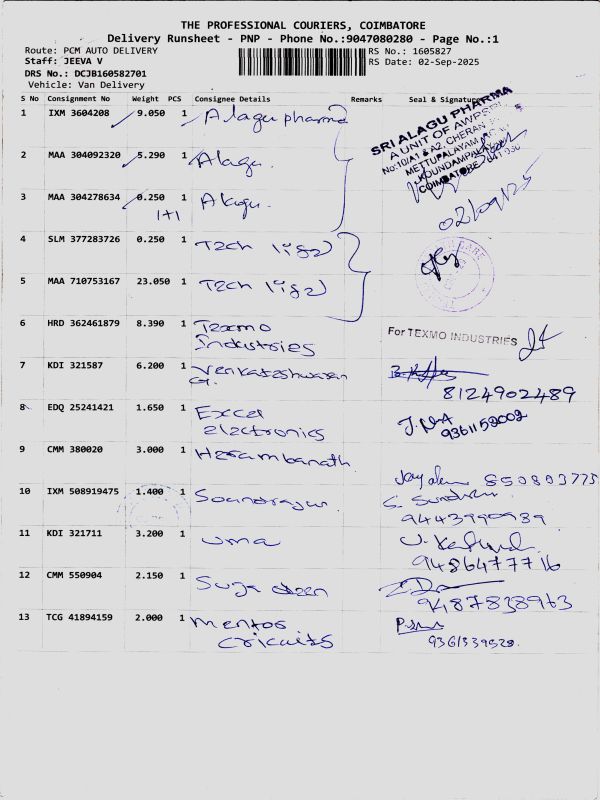 THE PROFESSIONAL COURIERS, COIMBATORE
Delivery Runsheet - PNP - Phone No.:9047080280 - Page No.:1
Route: PCM AUTO DELIVERY RS No.: 1605827
Staff: JEEVA V RS Date: 02-Sep-2025
DRS No.: DCJB160582701
Vehicle: Van Delivery
S No Consignment No Weight PCS Consignee Details Remarks Seal & Signature
1 IXM 3604208 9.050 1 Alagu pharma
SRI ALAGU PHARMA
A UNIT OF
No:10/A1 & A2, CHERAN
METTUPALAYAM
KOUNDAMPALAYAM
COIMBATORE
2 MAA 304092320 5.290 1 Alagu
3 MAA 304278634 0.250 1 Alagu
1+1
02/09/25
4 SLM 377283726 0.250 1 Tech
5 MAA 710753167 23.050 1 Tech
6 HRD 362461879 8.390 1 Texmo
Industries
For TEXMO INDUSTRIES
7 KDI 321587 6.200 1 Venkateshwaran
G.
8124902489
8 EDQ 25241421 1.650 1 Excel
electronics
9361152002
9 CMM 380020 3.000 1 Herambanath
10 IXM 508919475 1.400 1
Jayalem 850803775
9443990939
11 KDI 321711 3.200 1 uma
9486477716
12 CMM 550904 2.150 1 Suga
9487838963
13 TCG 41894159 2.000 1 mentos
cricuits
9361339520